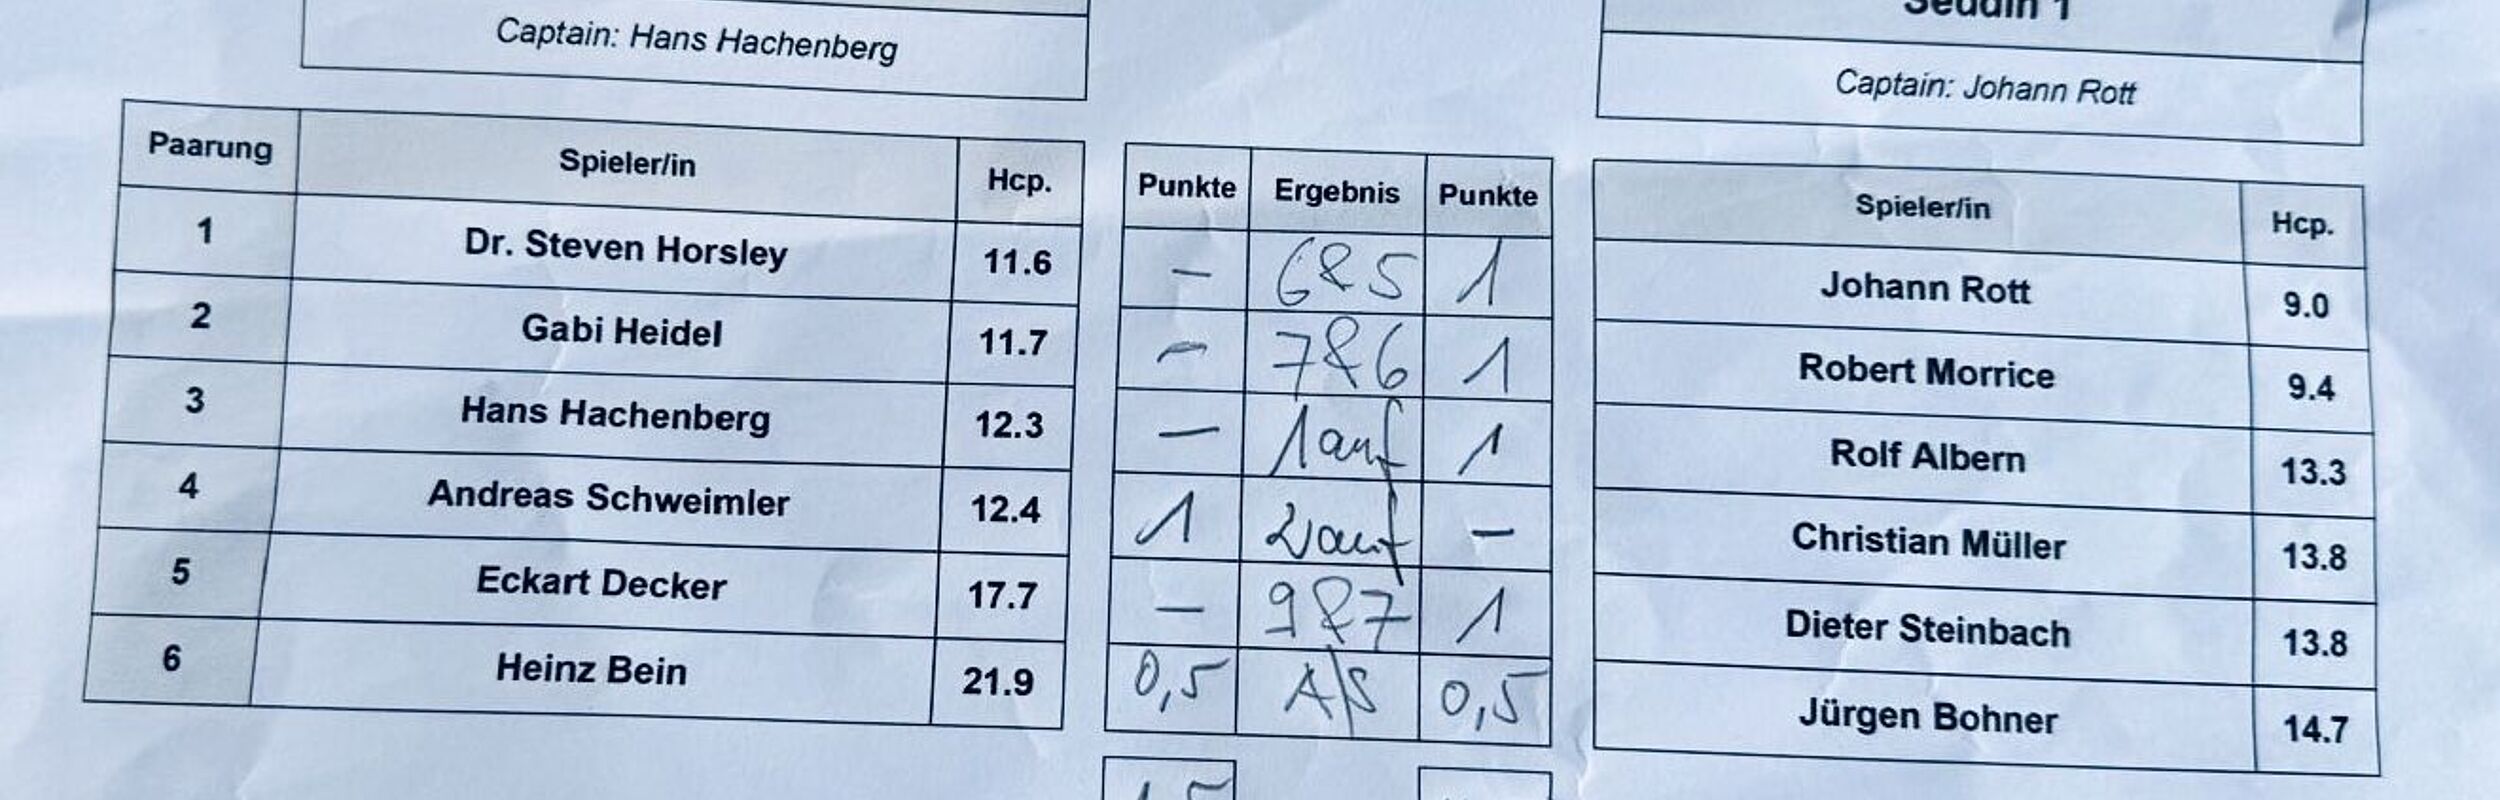 Captain: Hans Hachenberg
Seddin 1
Captain: Johann Rott
Paarung Spieler/in Hcp. Punkte Ergebnis Punkte Spieler/in Hcp.
1 Dr. Steven Horsley 11.6 - 6&5 1 Johann Rott 9.0
2 Gabi Heidel 11.7 - 7&6 1 Robert Morrice 9.4
3 Hans Hachenberg 12.3 - 1auf 1 Rolf Albern 13.3
4 Andreas Schweimler 12.4 1 2auf - Christian Müller 13.8
5 Eckart Decker 17.7 - 9&7 1 Dieter Steinbach 13.8
6 Heinz Bein 21.9 0,5 A/S 0,5 Jürgen Bohner 14.7